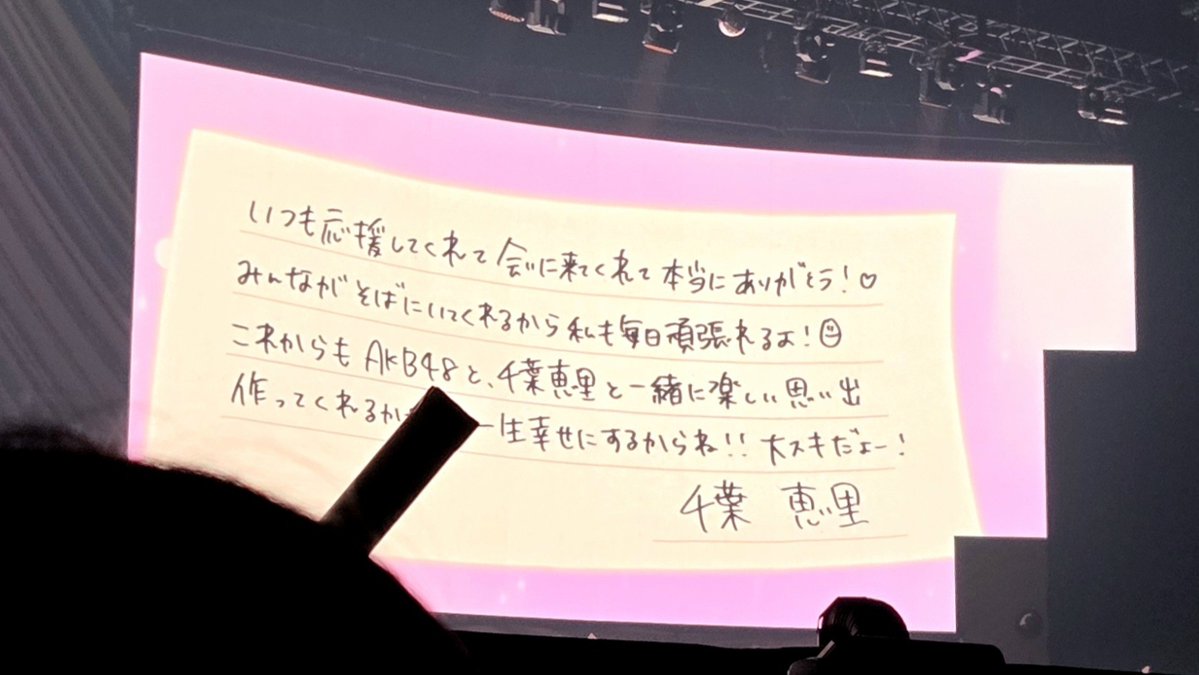 いつも応援してくれて会いに来てくれて本当にありがとう!♡
みんながそばにいてくれるから私も毎日頑張れるよ!
これからもAKB48と、千葉恵里と一緒に楽しい思い出
作ってくれるか 一生幸せにするからね!!大スキだよー!
千葉 恵里